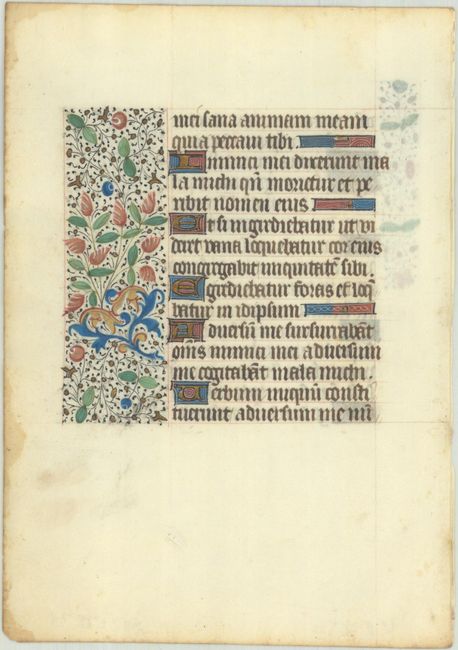 mei sana animam meam
quia peccavi tibi.
Inimici mei dixerunt ma
la michi qñ morietur et pe
ribit nomen eius
Et si ingrediebatur ut vi
deret vana loquebatur cor eius
congregabit iniquitatē sibi.
Egrediebatur foras et loq̄
batur in idipsum
Adversū me susurrabāt
om̄s inimici mei adversum
me cogitabāt mala michi.
Verbum iniquū consti
tuerunt adversum me nū